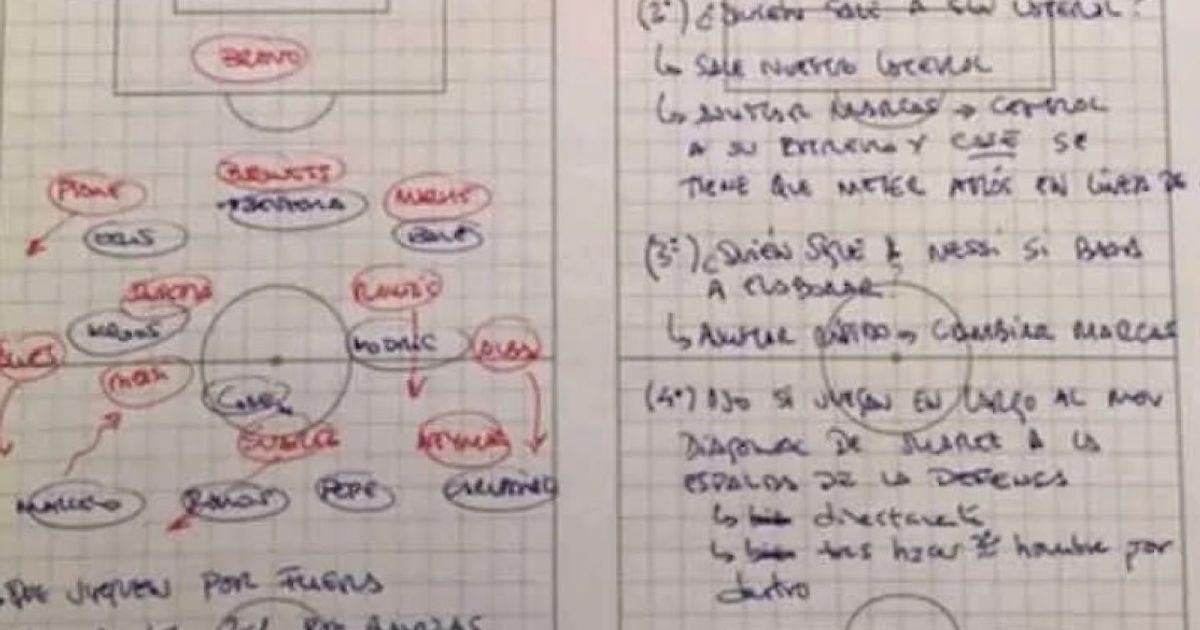 BRAVO
PIQUÉ
BUSQUETS
BENZEMA
MASCHE
CRIS
BALE
SUAREZ
KROOS
MODRIC
ALBA
MESSI
CASE
NEYMAR
MARCELO
RAMOS
PEPE
CARVAJAL
QUE JUEGUEN POR FUERA
(2º) ¿QUIEN SALE A SU LATERAL?
↳ SALE NUESTRO LATERAL
↳ AJUSTAR MARCAS → CONTROL
A SU EXTREMO Y CASE SE
TIENE QUE METER ATRÁS EN LÍNEA DE
(3º) ¿QUIÉN SIGUE A MESSI SI BAJA
A ELABORAR?
↳ AJUSTAR RÁPIDO → CAMBIAR MARCAS
(4º) OJO SI JUEGAN EN LARGO AL MOV
DIAGONAL DE SUAREZ A LA
ESPALDA DE LA DEFENSA
↳ directamente
↳ tras hacer hombre por
dentro